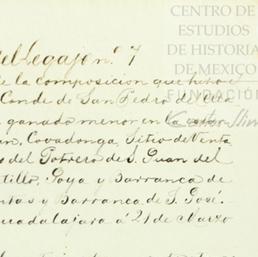 CENTRO DE
ESTUDIOS
DE HISTORIA
DE MÉXICO
FUNDACIÓN
del Legajo n.° 7
e la composicion que hizo
Conde de San Pedro del
ganado menor en la
Covadonga, Sitio de Venta
del Potrero de S. Juan del
tillo, Poya y Barranca de
ntas y Barranca de S. José.
uadalajara á 21 de Marzo